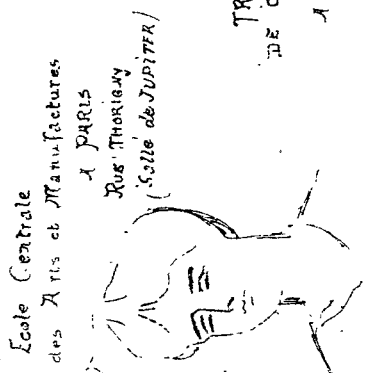 Ecole Centrale
des Arts et Manufactures
A PARIS
RUE THORIGNY
(Salle de JUPITER)
TR
DE
A